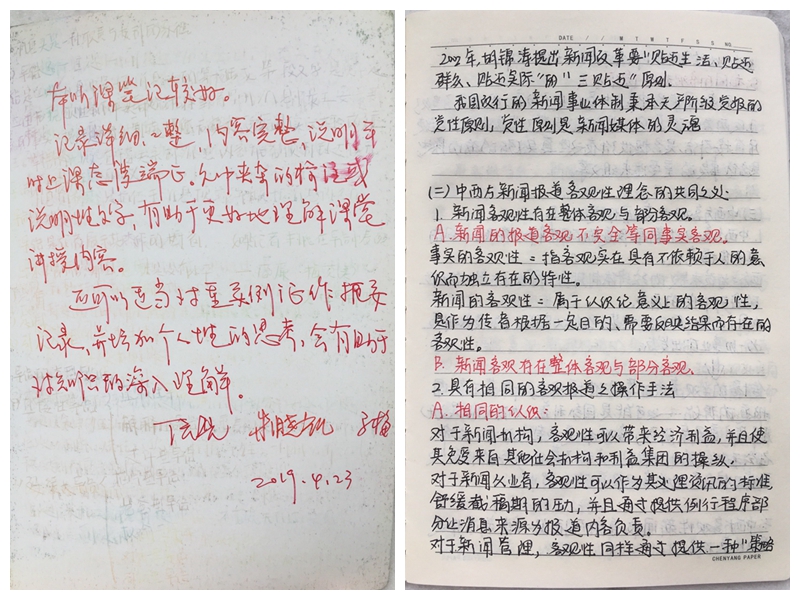 本听课笔记较好。
记录详细、工整、内容完整，说明平
时上课态度端正。
说明性文字，有助于更好地理解课堂
讲授内容。
还可以适当对重要例证作扼要
记录，并增加个人性的思考，会有助于
对知识的深入理解。
2019.4.23
DATE / / M T W T F S S NO.
年，胡锦涛提出新闻改革要"贴近生活、贴近
群众、贴近实际"的"三贴近"原则.
我国现行的新闻事业体制秉承无产阶级党报的
党性原则，党性原则是新闻媒体的灵魂
(二) 中西方新闻报道客观性理念的共同之处:
1. 新闻客观性存在整体客观与部分客观.
A. 新闻的报道客观不完全等同事实客观.
事实的客观性 = 指客观实在具有不依赖于人的意
识而独立存在的特性.
新闻的客观性 = 属于认识论意义上的客观性，
是作为传者根据一定目的、需要反映结果而存在的
客观性.
B. 新闻客观存在整体客观与部分客观.
2. 具有相同的客观报道之操作手法
A. 相同的认识:
对于新闻机构，客观性可以带来经济利益，并且使
其免受来自其他社会机构和利益集团的操纵.
对于新闻从业者，客观性可以作为其处理资讯的标准，
舒缓截稿期的压力，并且通过提供例行程序部
分让消息来源为报道内容负责.
对于新闻管理，客观性同样通过提供一种"策略
CHENYANG PAPER